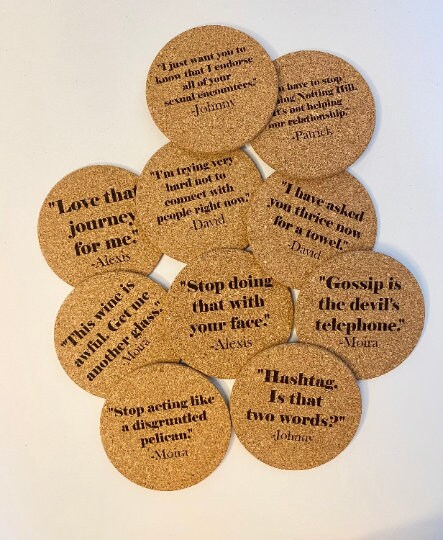 "I just want you to
know that I endorse
all of your
sexual encounters."
-Johnny
have to stop
Notting Hill.
not helping
our relationship."
-Patrick
"I'm trying very
hard not to
connect with
people right now."
-David
"Love that
journey
for me."
-Alexis
"I have asked
you thrice now
for a towel."
-David
"This wine is
awful. Get me
another glass."
Moira
"Stop doing
that with
your face."
-Alexis
"Gossip is
the devil's
telephone."
-Moira
"Stop acting like
a disgruntled
pelican."
-Moira
"Hashtag.
Is that
two words?"
-Johnny